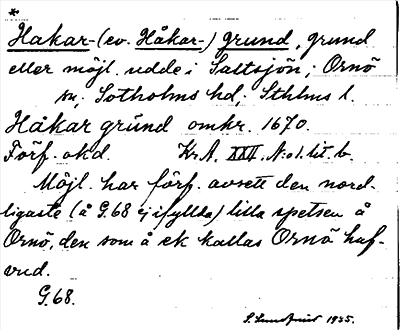 *
Hakar-(ev. Håkar-) grund, grund
eller möjl. udde i Saltsjön, Ornö
sn, Sotholms hd, Sthlms l.
Håkar grund omkr. 1670.
Förf. okd. Kr. A. XXII, N:o 1. lit. b.
Möjl. har förf. avsett den nord-
ligaste (å G.68 ej ifyllda) lilla spetsen å
Ornö, den som å ek kallas Ornö huf-
vud.
G.68.
S. 1935.